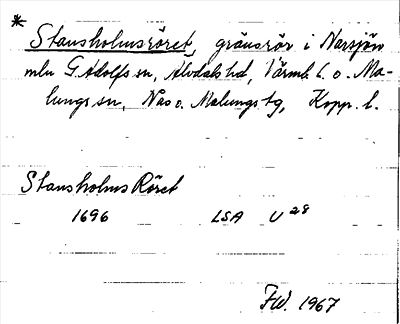 * Stansholmsröret, gränsrör i Narsjön
mln G. Adolfs sn, Älvdals hd, Värml. l. o. Ma-
lungs sn, Nås o. Malungs tg, Kopp. l.
Stansholms Röret
1696 LSA U 28
F.W. 1967